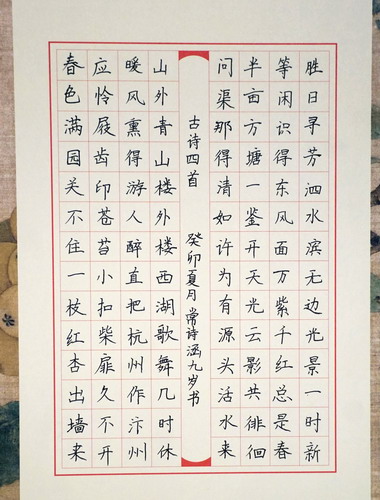 胜日寻芳泗水滨无边光景一时新
等闲识得东风面万紫千红总是春
半亩方塘一鉴开天光云影共徘徊
问渠那得清如许为有源头活水来
古诗四首 癸卯夏月常诗涵九岁书
山外青山楼外楼西湖歌舞几时休
暖风熏得游人醉直把杭州作汴州
应怜屐齿印苍苔小扣柴扉久不开
春色满园关不住一枝红杏出墙来